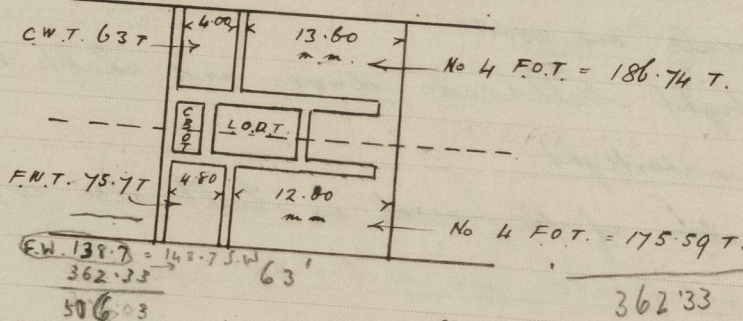 4.00
C.W.T. 63T
13.60
m.m.
No 4 F.O.T. = 186.74 T.
C
L.O.D.T.
F.W.T. 75.7T
4.80
12.80
m m
No 4 F.O.T. = 175.59 T.
F.W. 138.7 = 142.7 S.W
63'
362.33
362.33